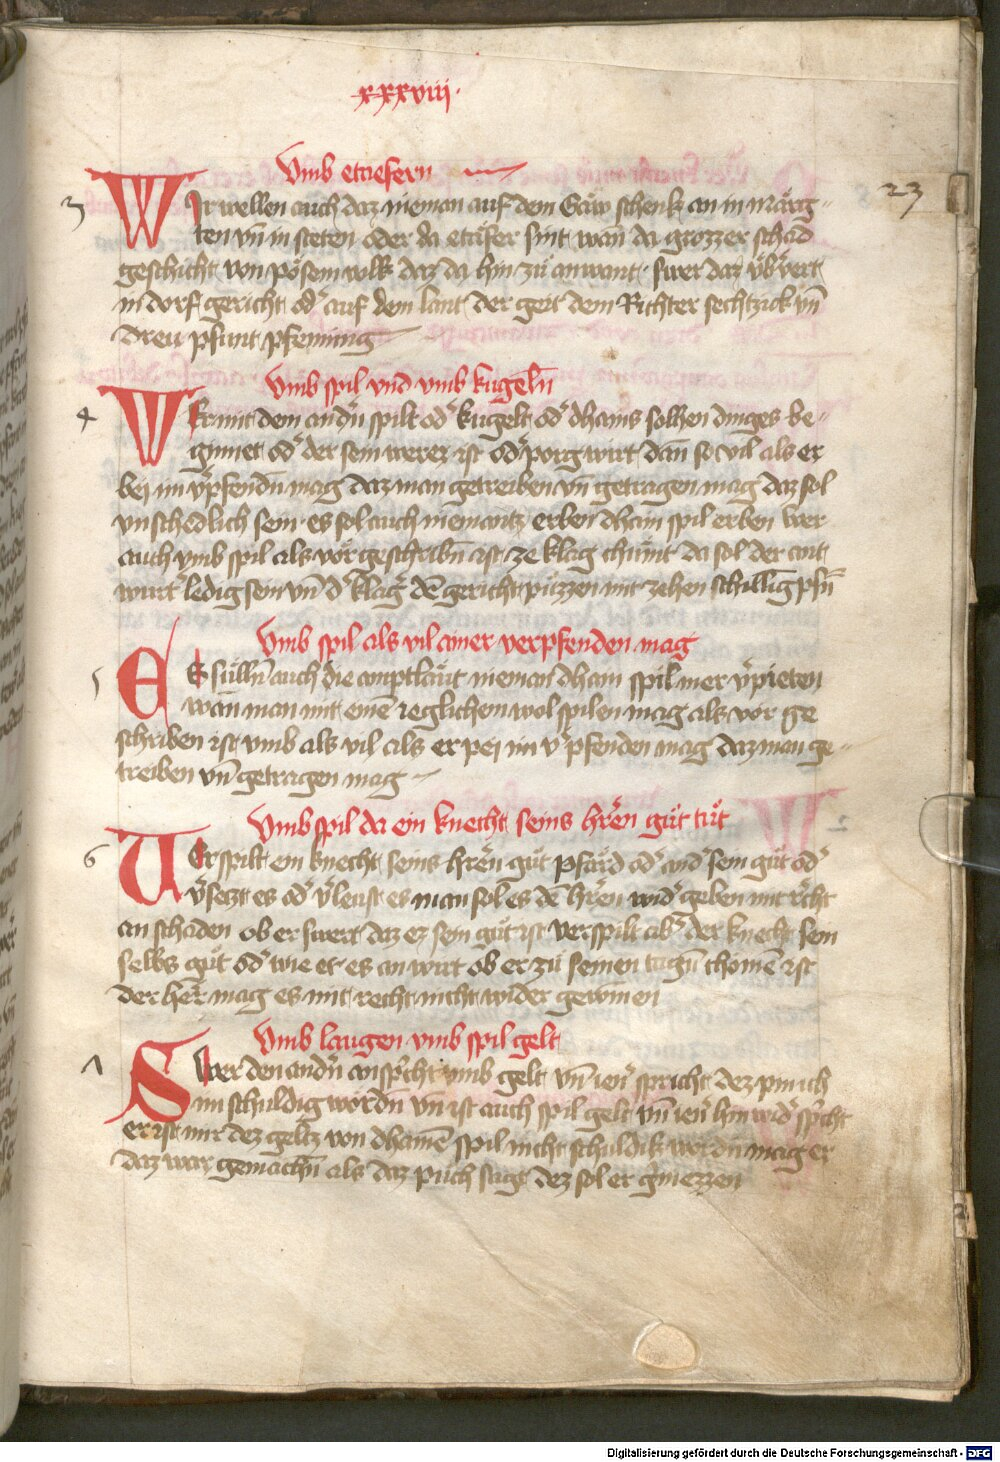 xxxviii.
Umb etriesern
23
3 WIr wellen auch daz nieman auf dem Gäw schenk an in märg-
ten vn̄ in steten oder da eträser sint wan̄ da grozzer schad
geschicht von pösem volk daz da hin zu anwant swer daz vb̓vert
in dorf gericht od̓ auf dem lant der geit dem Richter sechtzick vn̄
dreu pfunt pfenning
Umb spil vnd vmb kugeln̄
4 WEr mit dem andn̄ spilt od̓ kugelt od̓ dhains solhen dinges be-
ginnet od̓ der sein werer ist od̓ porg wirt dan̄ so vil als er
bei im v̓pfendn̄ mag daz man getreiben vn̄ getragen mag daz sol
vnschedlich sein es sol auch niemantz erben dhain spil erben wer
auch vmb spil als vor geschribn̄ ist ze klag chumt da sol der ant
wurt̓ ledig sein vn̄ d̓ klag̓ dē gericht puzzen mit zehen schilling pfn̄
Umb spil als vil ainer verpfenden mag
5 ES sulln̄ auch die amptläut nieman dhain spil mer v̓pieten
wan̄ man mit einē ieglichem wol spilen mag als vor ge
schriben ist vmb als vil als er pei im v̓pfenden mag daz man ge-
treiben vn̄ getragen mag
Umb spil da ein knecht seins hr̄en gut tut
6 VErspilt ein knecht seins hr̄en gut pfärd od̓ and̓ sein gut od̓
v̓setzt es od̓ v̓leust es man sol es dē hr̄en wid̓ geben mit recht
an schaden ob er swert daz ez sein gut ist verspilt ab̓ der knecht sein
selbs gut od̓ wie er es an wirt ob er zu seinen tagn̄ chomē ist
der herr mag es mit recht nicht wider gewinnen
Umb laugen vmb spil gelt
7 SWer den andn̄ an sp̓cht vmb gelt vn̄ ien̓ spricht dez pin ich
im schuldig wordn̄ vn̄ ist auch spil gelt vn̄ ien̓ hin wid̓ sp̓cht
er ist mir dez geltz von dhainē spil nicht schuldik wordn̄ mag er
daz war gemachn̄ als daz puch sagt dez sol er g̓niezzen
Digitalisierung gefördert durch die Deutsche Forschungsgemeinschaft - DFG